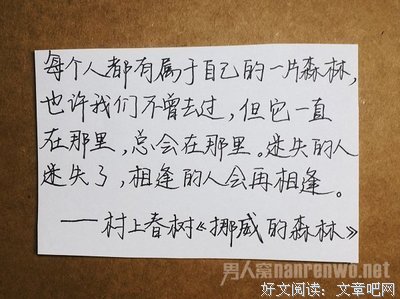 每个人都有属于自己的一片森林，
也许我们不曾去过，但它一直
在那里，总会在那里。迷失的人
迷失了，相逢的人会再相逢。
——村上春树《挪威的森林》
男人窝nanrenwo.net
好文阅读：文章吧网